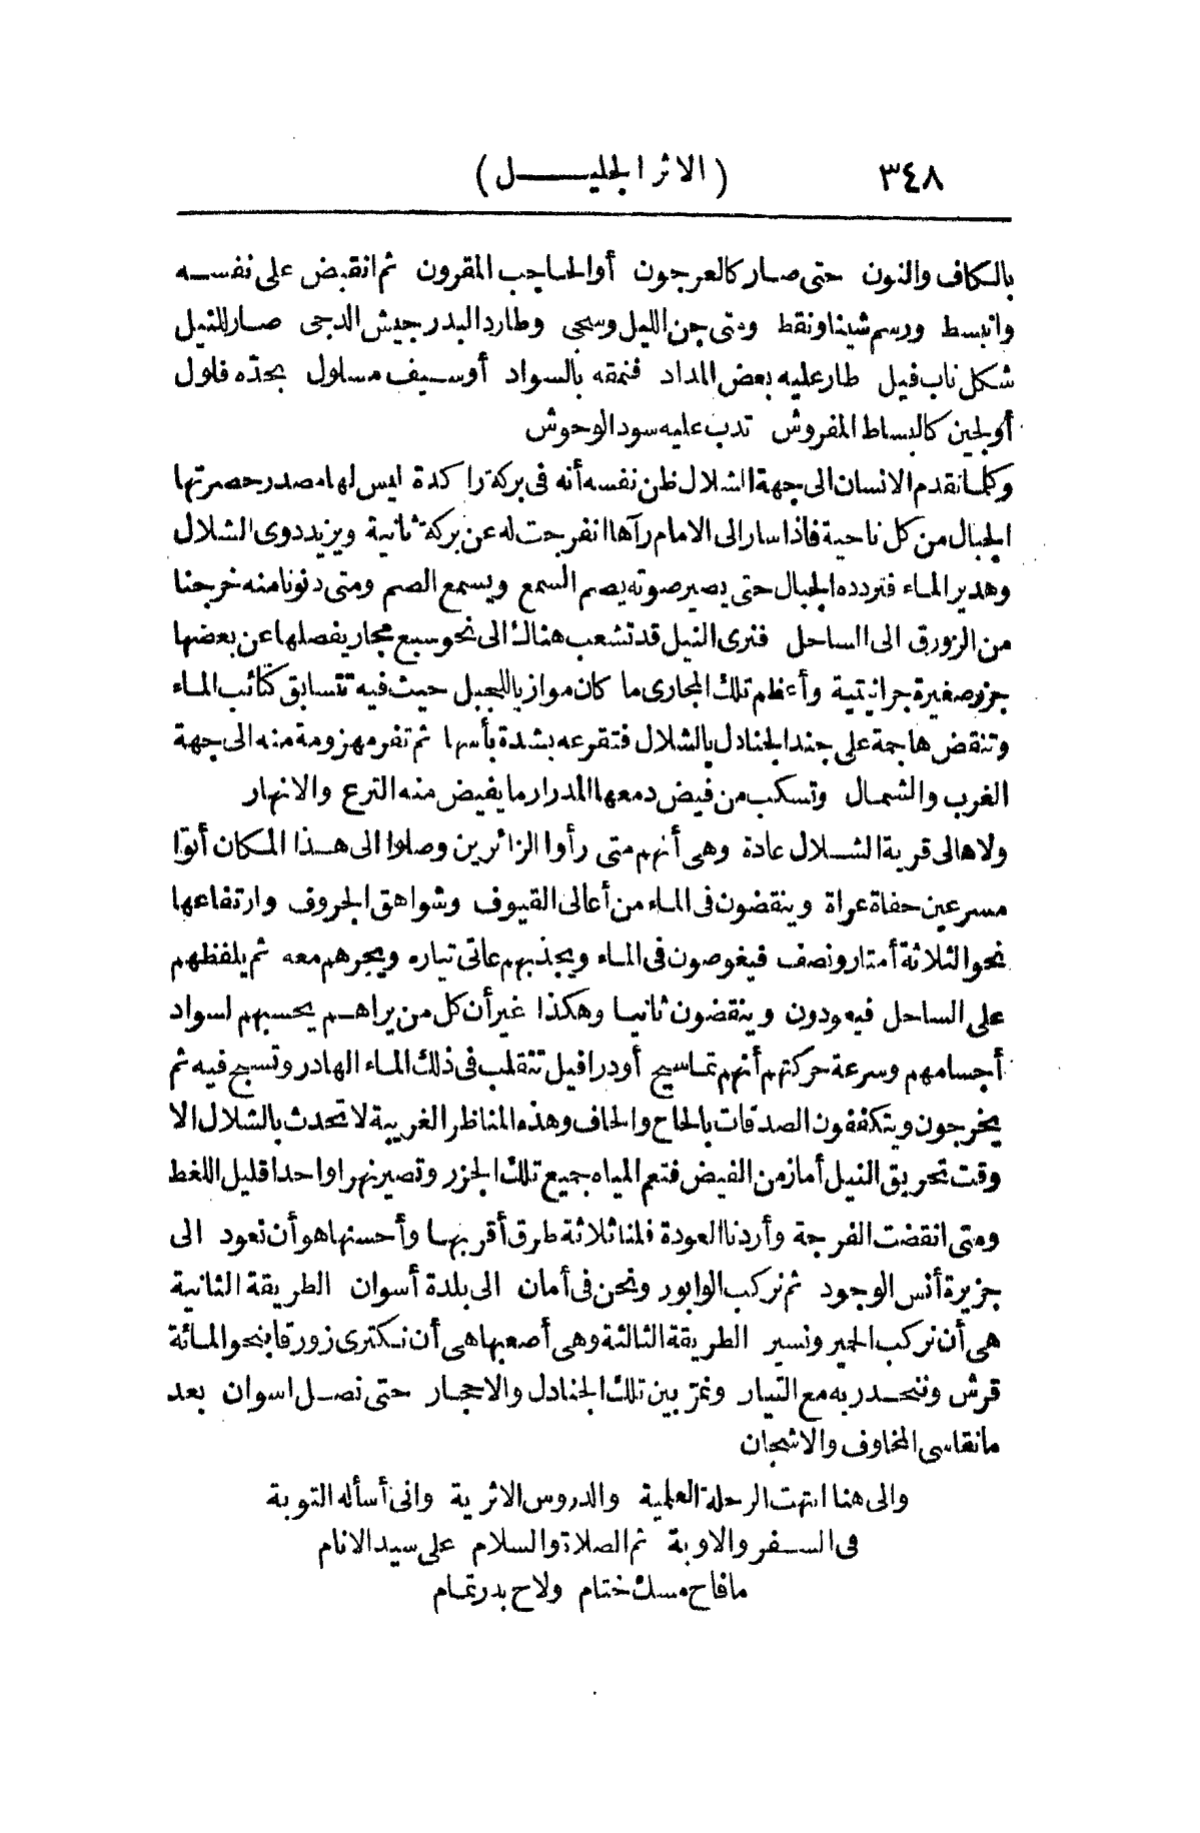 ٣٤٨ (الاثر الجليل)
بالكاف والنون حتى صار كالعرجون أو الحاجب المقرون ثم انقبض على نفسه
وانبسط ورسم شينا ونقط ومتى جن الليل وسجى وطارد البدر جيش الدجى صار للنيل
شكل ناب فيل طار عليه بعض المداد فنمقه بالسواد أو سيف مسلول بحدّه فلول
أو لجين كالبساط المفروش تدب عليه سود الوحوش
وكلما تقدم الانسان الى جهة الشلال ظن نفسه أنه فى بركة راكدة ليس لها مصدر حصرتها
الجبال من كل ناحية فاذا سار الى الامام رآها انفرجت له عن بركة ثانية ويزيد دوى الشلال
وهدير الماء فتردده الجبال حتى يصير صوته يصم السمع ويسمع الصم ومتى دنونا منه خرجنا
من الزورق الى الساحل فنرى النيل قد تشعب هناك الى نحو سبع مجار يفصلها عن بعضها
جزر صغيرة جرانيتية وأعظم تلك المجارى ما كان موازيا للجبل حيث فيه تتسابق كتائب الماء
وتنقض هاجمة على جند الجنادل بالشلال فتقرعه بشدة بأسها ثم تفر مهزومة منه الى جهة
الغرب والشمال وتسكب من فيض دمعها المدرار ما يفيض منه الترع والانهار
ولاهالى قرية الشلال عادة وهى أنهم متى رأوا الزائرين وصلوا الى هذا المكان أتوا
مسرعين حفاة عراة وينقضون فى الماء من أعالى القيوف وشواهق الجروف وارتفاعها
نحو الثلاثة أمتار ونصف فيغوصون فى الماء ويجذبهم عاتى تياره ويجرهم معه ثم يلفظهم
على الساحل فيعودون وينقضون ثانيا وهكذا غير أن كل من يراهم يحسبهم لسواد
أجسامهم وسرعة حركتهم أنهم تماسيح أو درافيل تتقلب فى ذلك الماء الهادر وتسبح فيه ثم
يخرجون ويتكففون الصدقات بالحاح والحاف وهذه المناظر الغريبة لا تحدث بالشلال الا
وقت تحريق النيل أما زمن الفيض فتعم المياه جميع تلك الجزر وتصير نهرا واحدا قليل اللغط
ومتى انقضت الفرجة وأردنا العودة فلنا ثلاثة طرق أقربها وأحسنها هو أن نعود الى
جزيرة أنس الوجود ثم نركب الوابور ونحن فى أمان الى بلدة أسوان الطريقة الثانية
هى أن نركب الحمير ونسير الطريقة الثالثة وهى أصعبها هى أن نكترى زورقا بنحو المائة
قرش وننحدر به مع التيار ونمرّ بين تلك الجنادل والاحجار حتى نصل اسوان بعد
ما نقاسى المخاوف والاشجان
والى هنا انتهت الرحلة العلمية والدروس الاثرية وانى أسأله التوبة
فى السفر والاوبة ثم الصلاة والسلام على سيد الانام
ما فاح مسك ختام ولاح بدر تمام